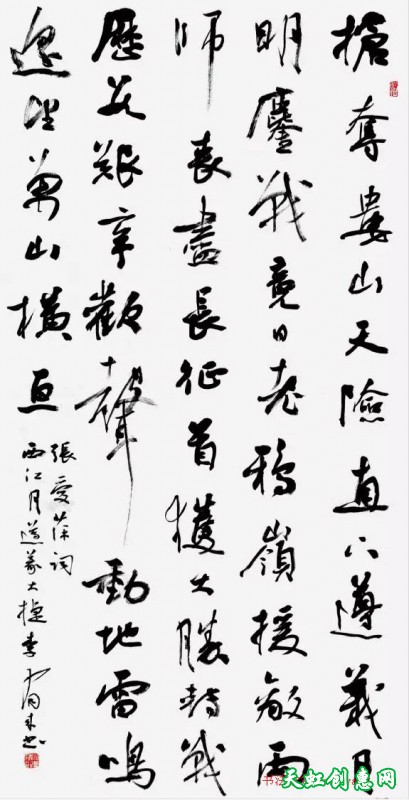 搶奪婁山天險直下遵義月
明鏖戰竟日老鴉嶺援敵兩
師喪盡長征首獲大勝轉戰
歷艱辛歡聲動地雷鳴
遙望萬山橫亘
張愛萍詞
西江月遵義大捷李
天虹创惠网